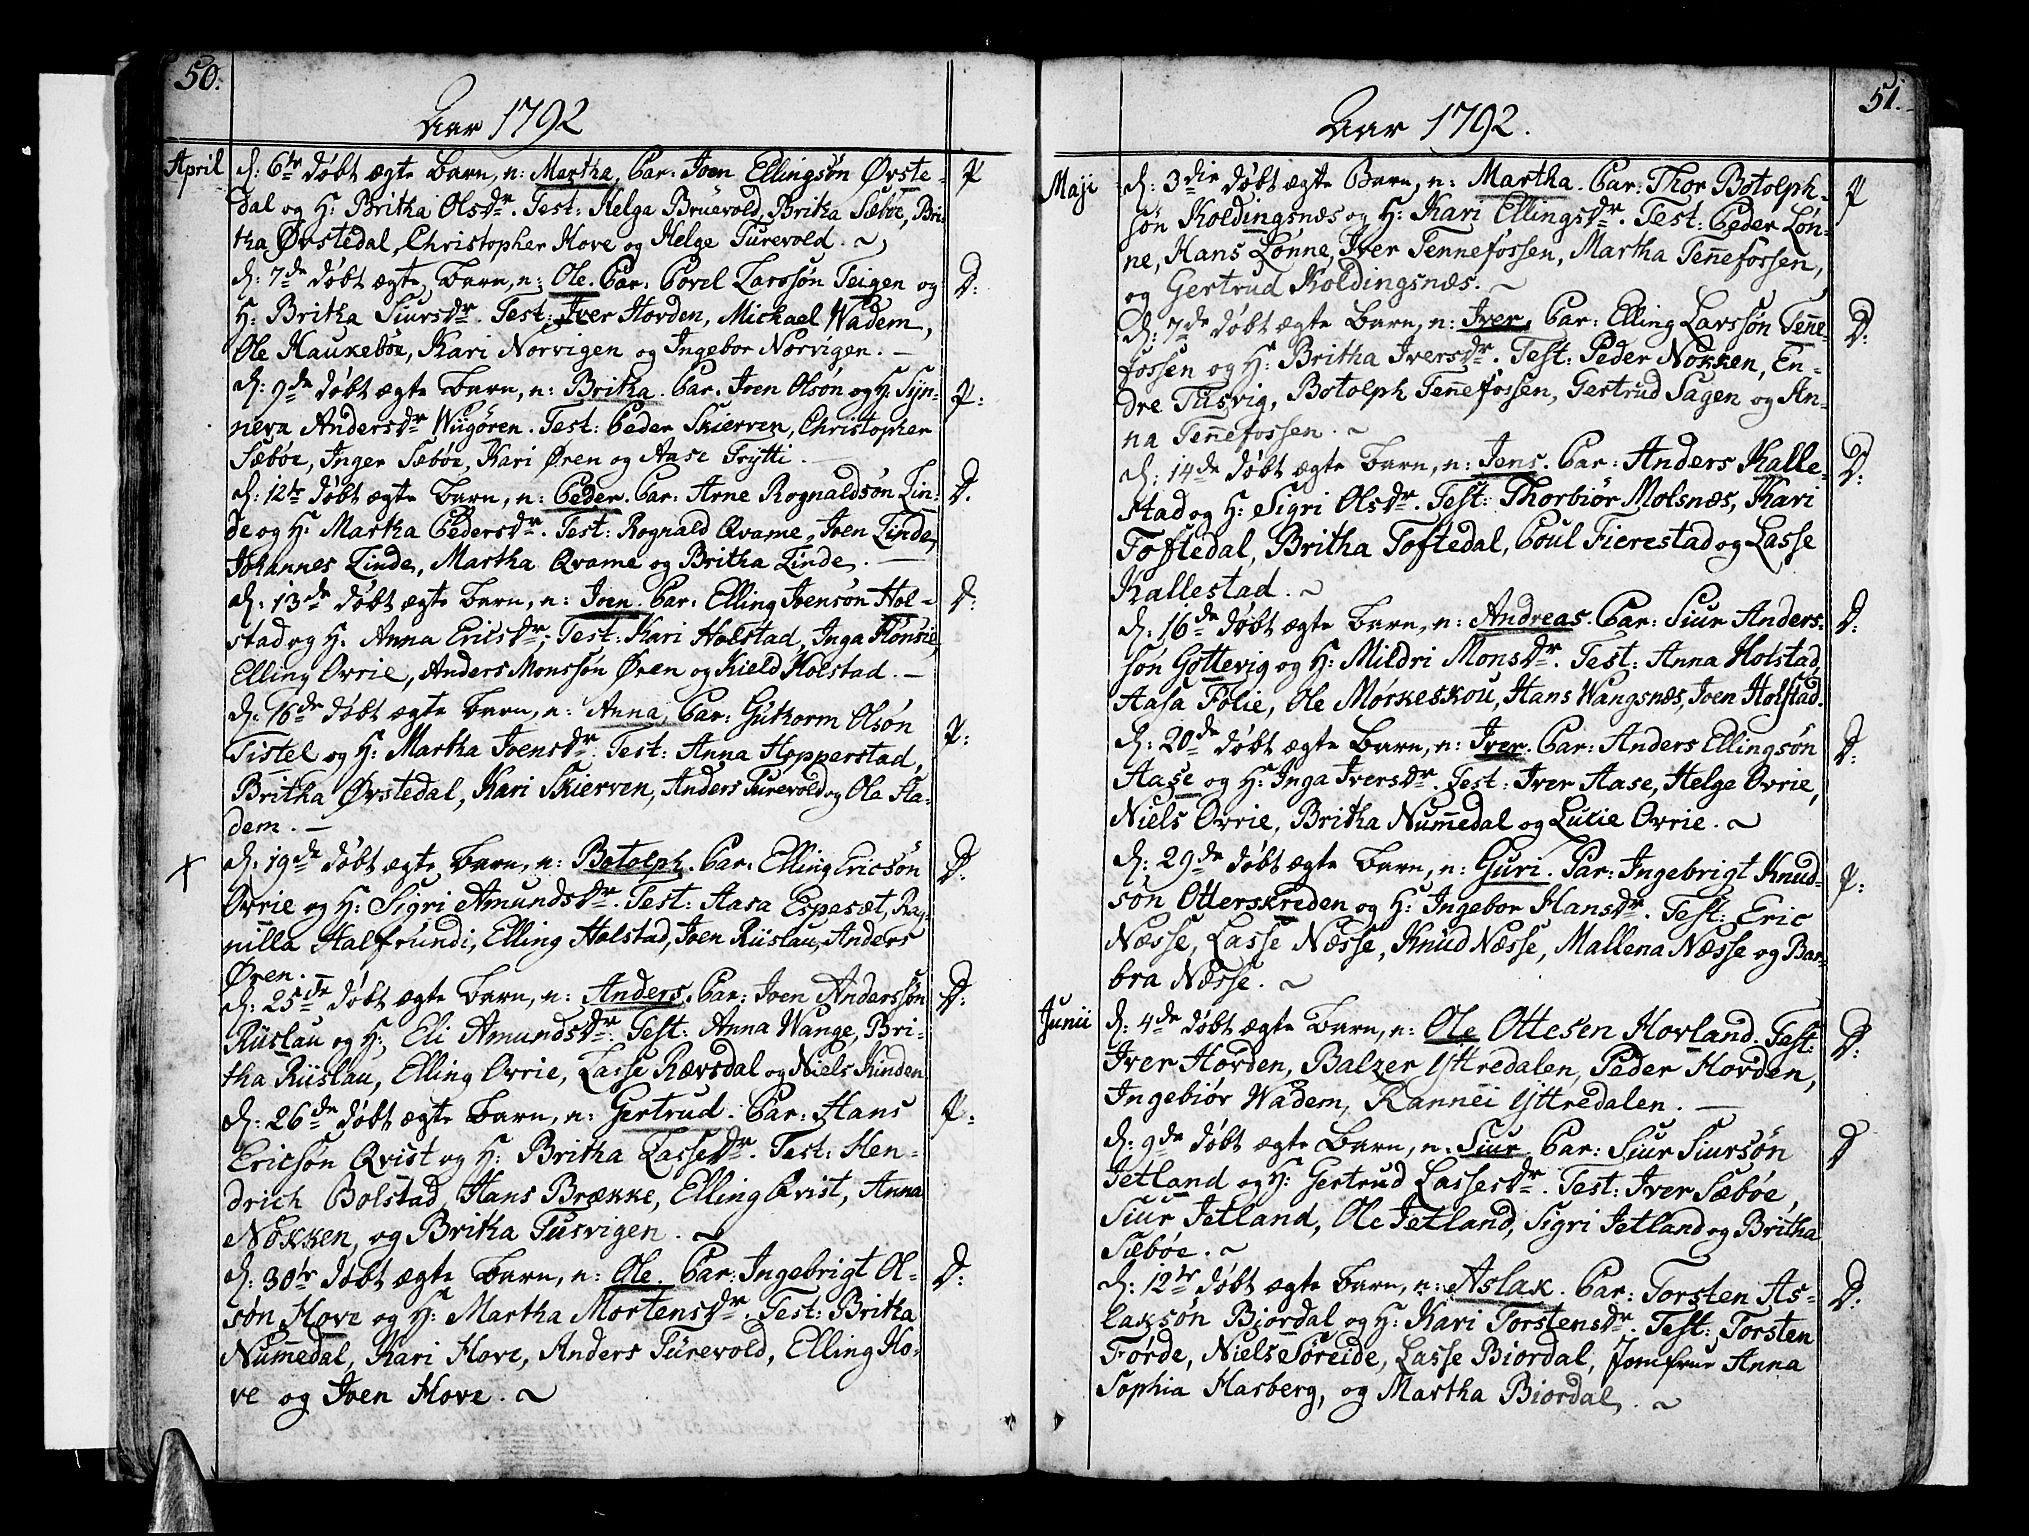 50.
Aar 1792
April
d: 6te døbt ægte Barn, n: Martha, Par: Joen Ellingsøn Øvste- P
dal og H: Britha Olsdr. Test: Helga Brüevold, Britha Sæbøe, Bri-
tha Øvstedal, Christopher Hove og Helge Turevold.
d: 7de døbt ægte Barn, n: Ole. Par: Povel Larssøn Teigen og D:
H: Britha Siursdr. Test: Iver Horden, Michael Wadem,
Ole Haukebøe, Kari Norvigen og Ingebor Norvigen.
d: 9de døbt ægte Barn, n: Britha. Par: Joen Olsøn og H: Syn- P:
neva Andersdr Wugøren. Test: Peder Skierven, Christopher
Sæbøe, Inger Sæbøe, Kari Øren og Aase Trytti.
d: 12te døbt ægte Barn, n: Peder. Par: Arne Rognaldsøn Lin- D.
de og H: Martha Pedersdr. Test: Rognald Qvame, Joen Linde,
Johannes Linde, Martha Qvame og Britha Linde.
d: 13de døbt ægte Barn, n: Joen. Par: Elling Joensøn Hol- D:
stad og H: Anna Ericsdr, Test: Kari Holstad, Inga Hønsie,
Elling Ovrie, Anders Monssøn Øren og Kield Holstad.
d: 16de døbt ægte Barn, n: Anna, Par: Guthorm Olsøn P:
Tistel og H: Martha Joensdr. Test: Anna Hopperstad,
Britha Øvstedal, Kari Skierven, Anders Turevold og Ole Sta-
dem.
+ d: 19de døbt ægte Barn, n: Botolph. Par: Elling Ericsøn D:
Ovrie og H: Sigri Amundsdr. Test: Aasa Espesæt, Rag-
nilla Halfrundi, Elling Holstad, Joen Rüslau, Anders
Øren.
d: 25de døbt ægte Barn, n: Anders. Par: Joen Anderssøn D:
Rüslau og H: Eli Amundsdr. Test: Anna Wange, Bri-
tha Rüslau, Elling Ovrie, Lasse Rævsdal og Niels Hinden
d: 26de døbt ægte Barn, n: Gertrud. Par: Hans P:
Ericsøn Qvist og H: Britha Lassedr. Test: Hen-
drich Bolstad, Hans Brække, Elling Qvist, Anna
Nøkken, og Britha Tusvigen.
d: 30te døbt ægte Barn, n: Ole. Par: Ingebrigt Ol- D:
søn Hove og H: Martha Mortensdr. Test: Britha
Nummedal, Kari Hove, Anders Türevold, Elling Ho-
ve og Joen Hove.
51.
Aar 1792.
Maji
d: 3die døbt ægte Barn, n: Martha. Par: Thor Botolph- P
søn Koldingsnæs og H: Kari Ellingsdr. Test: Peder Løn-
ne, Hans Lønne, Iver Tennefossen, Martha Teñefossen,
og Gertrud Koldingsnæs.
d: 7de døbt ægte Barn, n: Iver, Par: Elling Larssøn Teñe- D:
fossen og H: Britha Iversdr. Test: Peder Nøkken, En-
dre Tusvig, Botolph Teñefossen, Gertrud Sagen og An-
na Teñefossen.
d: 14de døbt ægte Barn, n: Jens. Par: Anders Kalle- D:
stad og H: Sigri Olsdr. Test: Thorbiør Molsnæs, Kari
Toftedal, Britha Toftedal, Poul Fierestad og Lasse
Kallestad.
d: 16de døbt ægte Barn, n: Andreas. Par: Siur Anders- D:
søn Gottevig og H: Mildri Monsdr. Test: Anna Holstad,
Aasa Folie, Ole Mørkeskou, Hans Wangsnæs, Joen Holstad.
d: 20de døbt ægte Barn, n: Iver. Par: Anders Ellingsøn D:
Aase og H: Inga Iversdr. Test: Iver Aase, Helge Ovrie,
Niels Ovrie, Britha Nummedal og Lucie Ovrie.
d: 29de døbt ægte Barn, n: Guri. Par: Ingebrigt Knud- P:
søn Otterskreden og H: Ingebor Hansdr. Test: Eric
Næsse, Lasse Næsse, Knud Næsse, Mallena Næsse og Bar-
bra Næsse.
Junii
d: 4de døbt ægte Barn, n: Ole Ottesen Hovland. Test: D:
Iver Horden, Balzer Yttredalen, Peder Horden,
Ingebiør Wadem, Rannei Yttredalen.
d: 9de døbt ægte Barn, n: Siur. Par: Siur Siursøn D
Jetland og H: Gertrud Lassesdr. Test: Iver Sæbøe,
Siur Jetland, Ole Jetland, Sigri Jetland og Britha
Sæbøe.
d: 12te døbt ægte Barn, n: Aslak. Par: Torsten As- D:
laksøn Bjordal og H: Kari Torstensdr. Test: Torsten
Førde, Niels Søreide, Lasse Biordal, Jomfrue Anna
Sophia Harberg, og Martha Biordal.